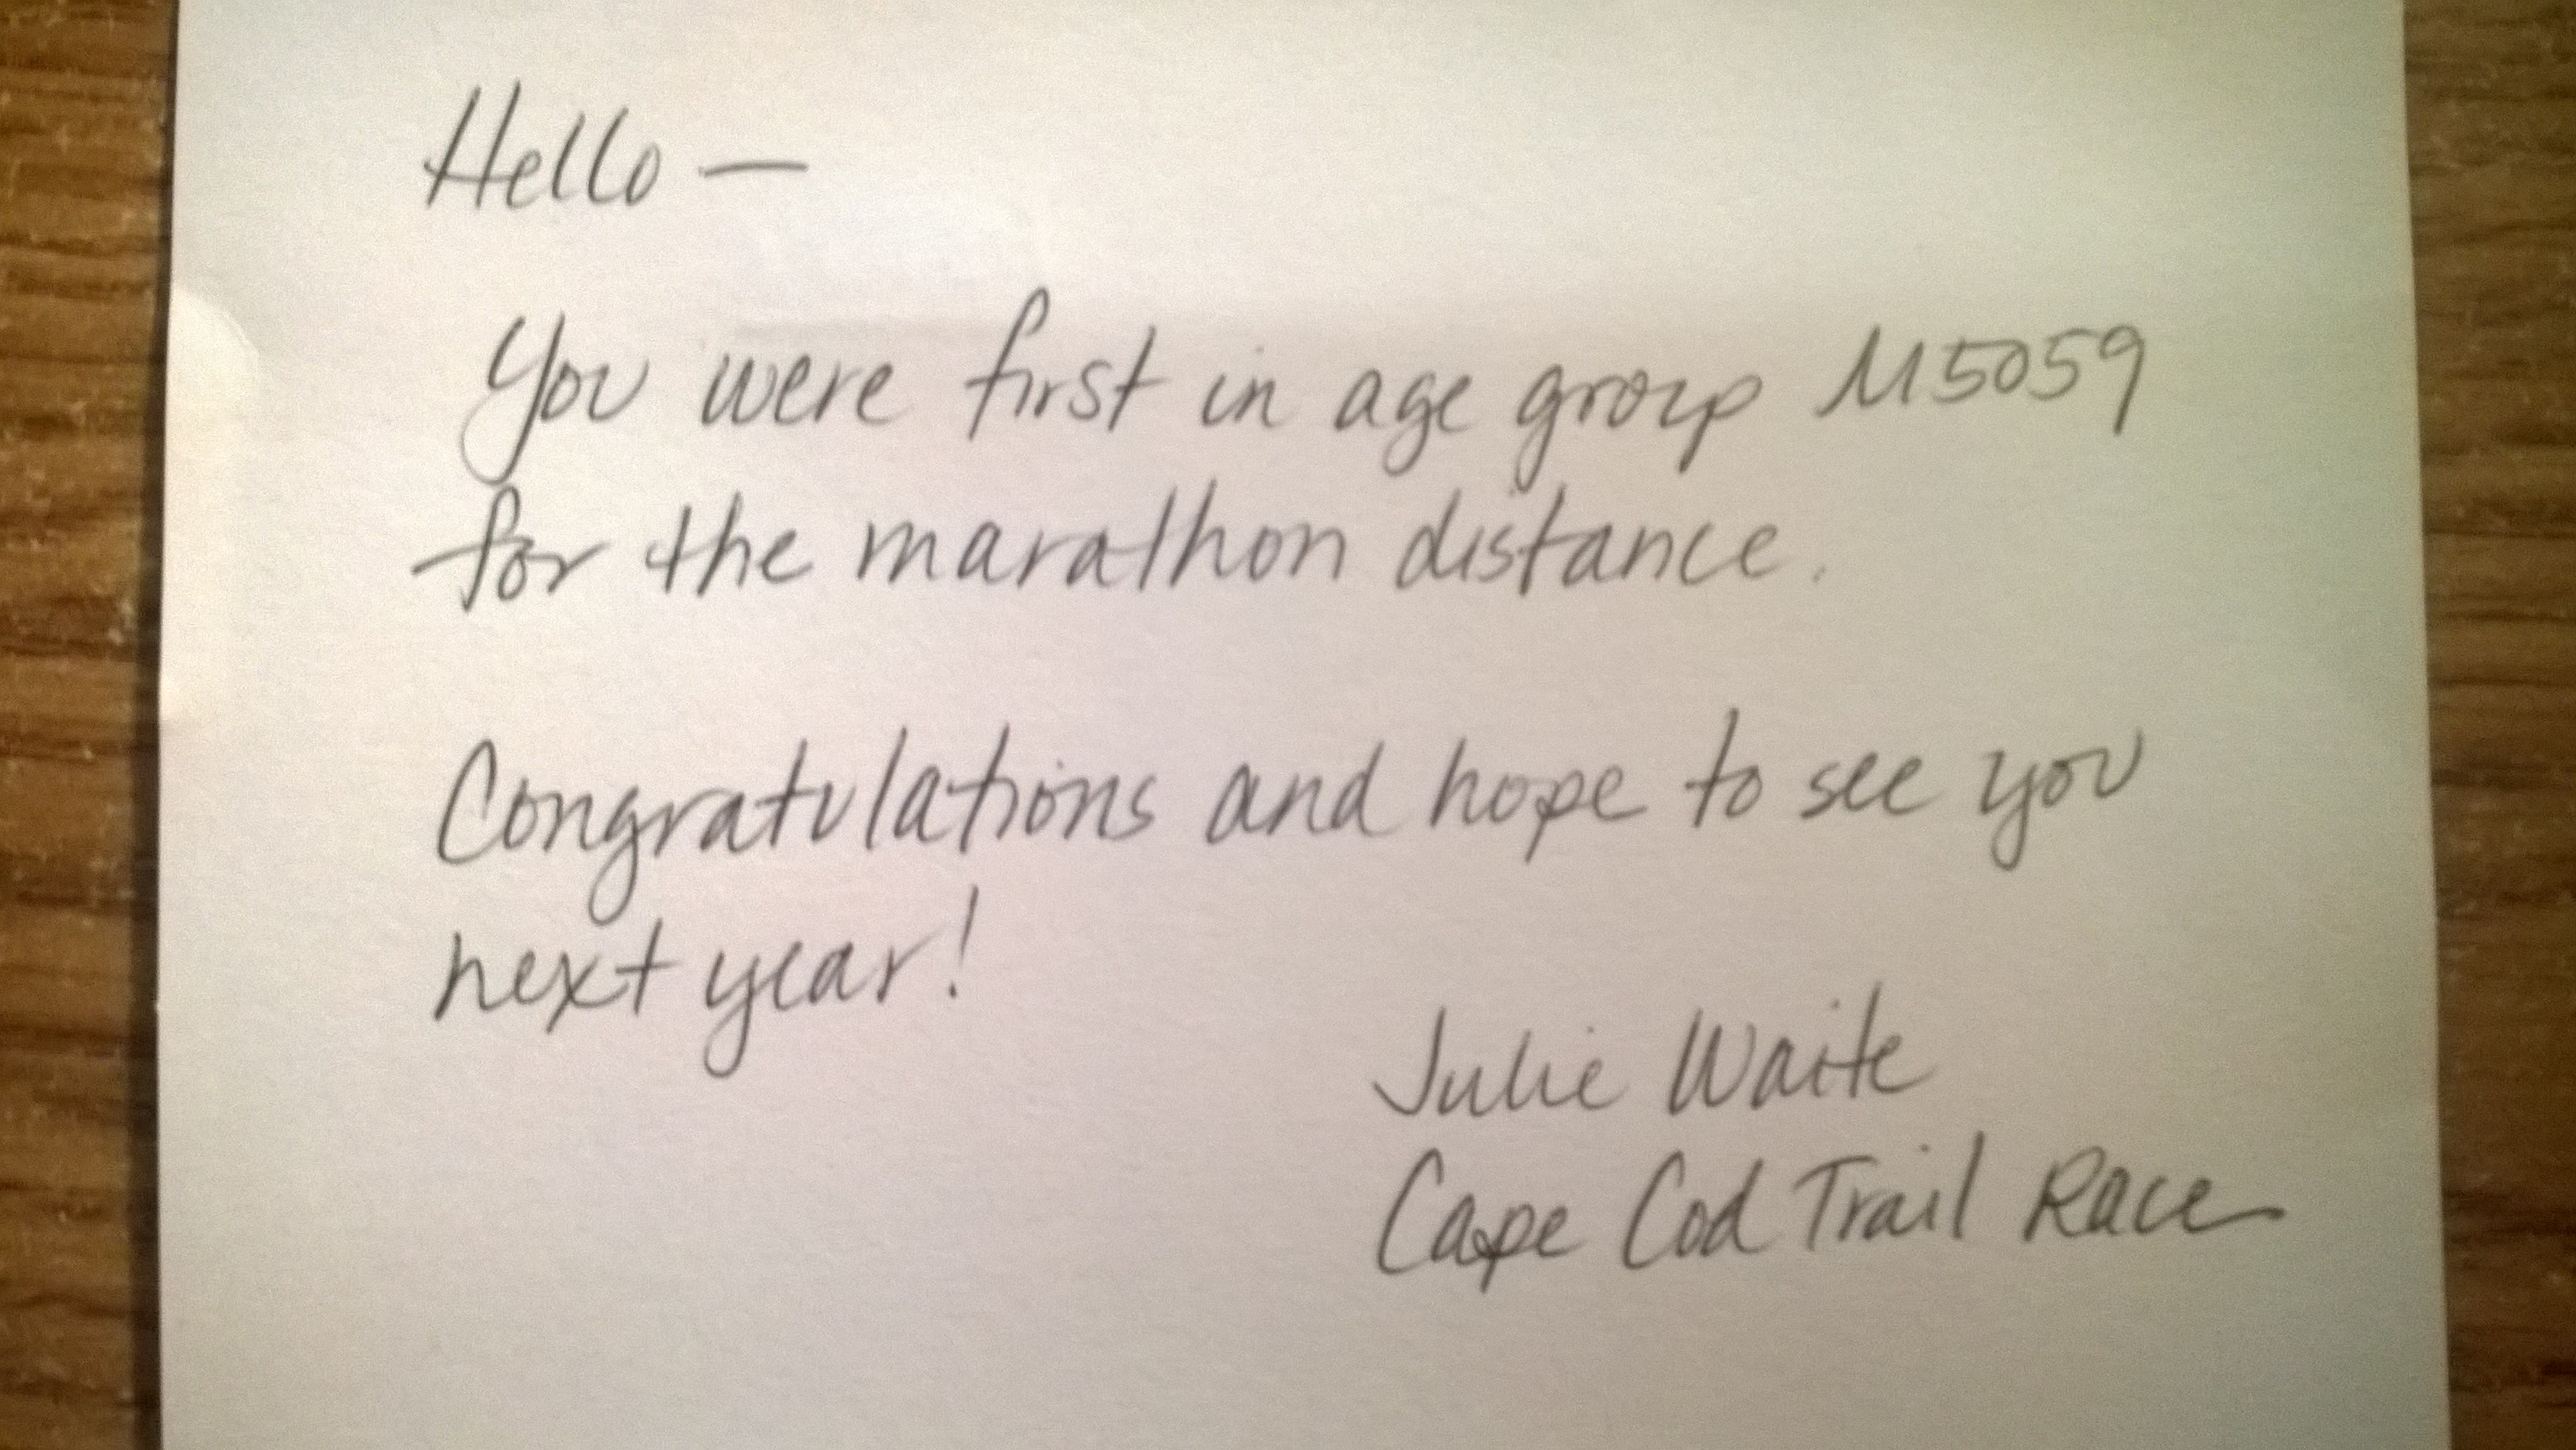 Hello —
You were first in age group M5059
for the marathon distance.
Congratulations and hope to see you
next year!
Julie Waite
Cape Cod Trail Race